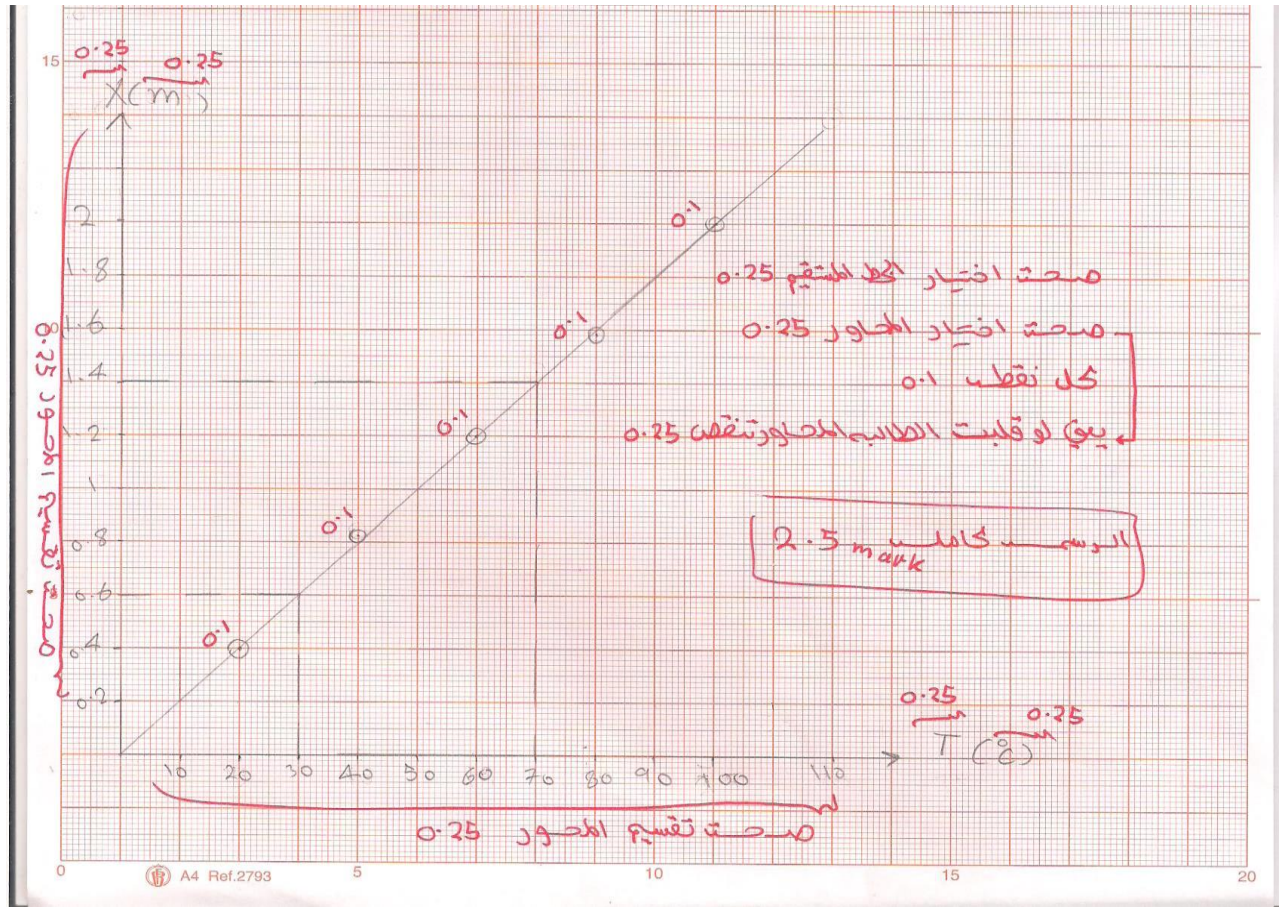 15
0.25 0.25
X(m)
2
1.8
1.6
1.4
1.2
1
0.8
0.6
0.4
0.2
صحة تقسيم المحور 0.25
0.1
0.1
0.1
0.1
0.1
صحة اختيار الخط المستقيم 0.25
صحة اختيار المحاور 0.25
كل نقطة 0.1
يعني لو قلبت الطالبة المحاور تنقص 0.25
الرسمة كاملة 2.5 mark
0.25 0.25
T (°c)
10 20 30 40 50 60 70 80 90 100 110
صحة تقسيم المحور 0.25
A4 Ref.2793
0 5 10 15 20